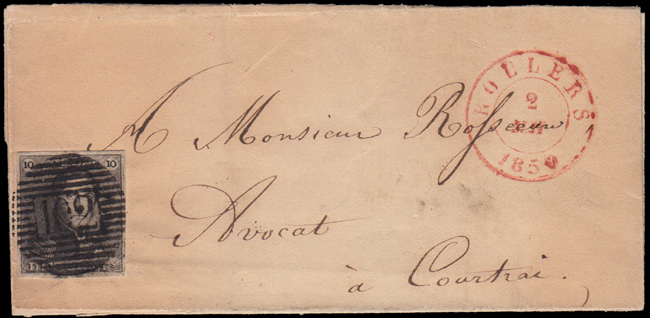 ROULERS
2
1850
A Monsieur Rosseeuw
Avocat
à Courtrai.
10 10
102